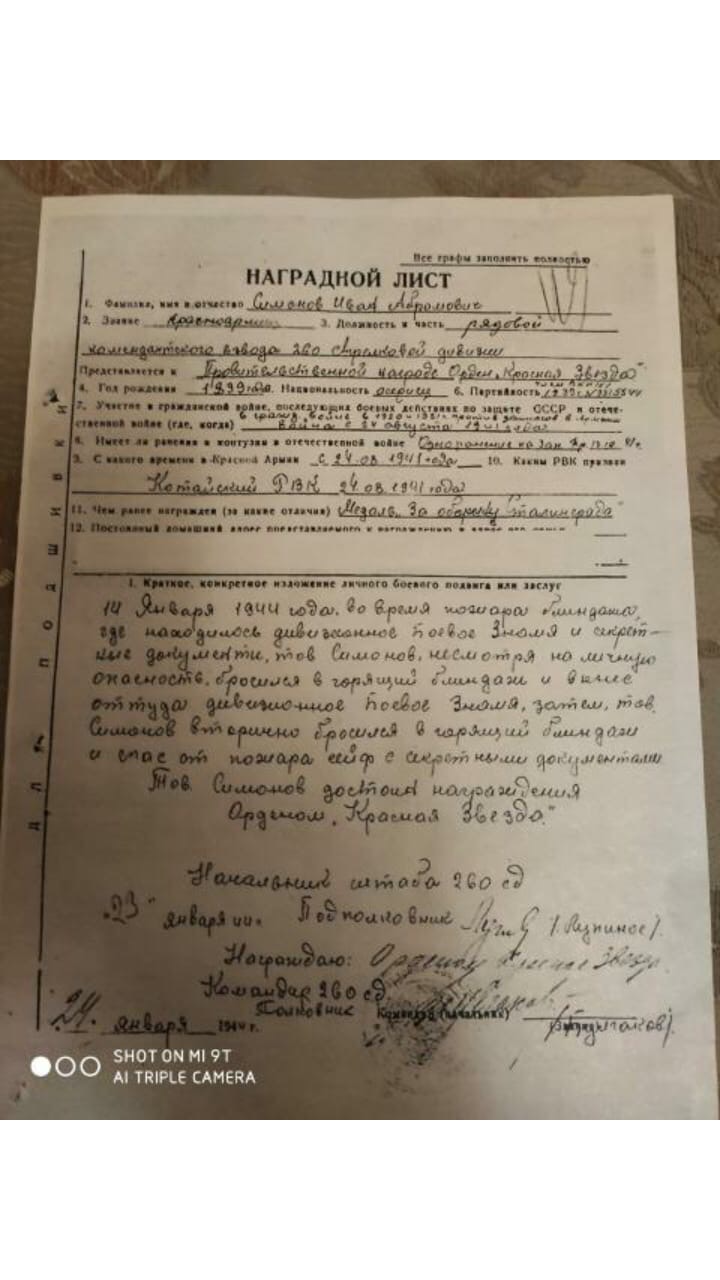 Все графы заполнить полностью
НАГРАДНОЙ ЛИСТ
1. Фамилия, имя и отчество Симонов Иван Абромович
2. Звание красноармеец 3. Должность и часть рядовой
комендантского взвода 260 стрелковой дивизии
Представляется к Правительственной награде Орден „Красная Звезда"
4. Год рождения 1899 года. Национальность 6. Партийность
7. Участие в гражданской войне, последующих боевых действиях по защите СССР и отече-
ственной войне (где, когда) война с 24 августа 1941 года
8. Имеет ли ранения и контузии в отечественной войне
9. С какого времени в Красной Армии с 24.08.1941 года 10. Каким РВК призван
Котайский РВК 24.08.1941 года
11. Чем ранее награжден (за какие отличия) Медаль „За оборону Сталинграда"
12. Постоянный домашний адрес представляемого к награждению и адрес его семьи
I. Краткое, конкретное изложение личного боевого подвига или заслуг
14 Января 1944 года, во время пожара блиндажа,
где находилось дивизионное Боевое Знамя и секрет-
ные документи, тов Симонов, несмотря на личную
опасность, бросился в горящий блиндаж и вынес
оттуда дивизионное Боевое Знамя, затем, тов.
Симонов вторично бросился в горящий блиндаж
и спас от пожара сейф с секретными документами
Тов. Симонов достоин награждения
Орденом „Красная Звезда."
Начальник штаба 260 сд
„23" января Подполковник
Награждаю: Орденом Красная Звезда
Командир 260 сд
Полковник Командир (начальник)
24. января 1944 г.
для подшивки
SHOT ON MI 9T
AI TRIPLE CAMERA